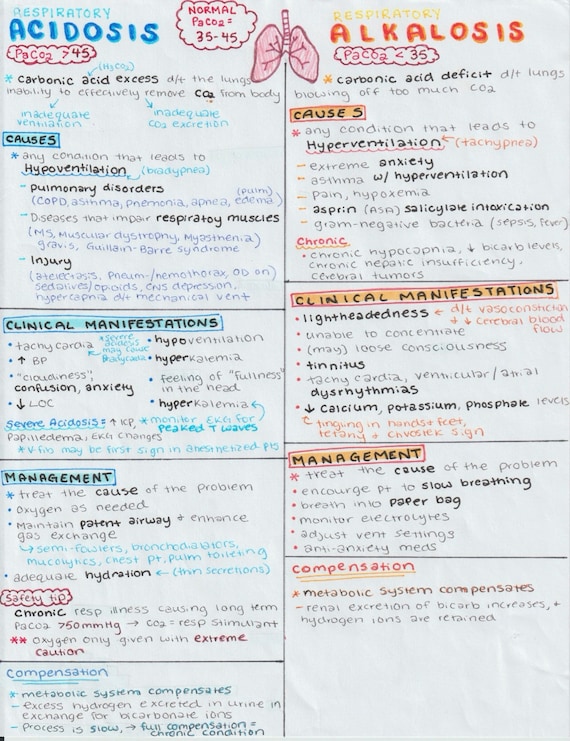 RESPIRATORY
ACIDOSIS
PaCO2 > 45
NORMAL
PaCO2 =
35-45
* carbonic acid excess d/t the lungs
(H2CO3)
inability to effectively remove CO2 from body
inadequate ventilation
inadequate CO2 excretion
CAUSES
* any condition that leads to
Hypoventilation (bradypnea)
- pulmonary disorders
(COPD, asthma, pnemonia, apnea, (pulm) edema)
- Diseases that impair respiratoy muscles
(MS, Muscular dystrophy, Myasthenia
gravis, Guillain-Barre syndrome
- Injury
(atelectasis, pneum-/hemothorax, OD on
sedatives/opioids, CNS depression,
hypercapnia d/t mechanical vent
CLINICAL MANIFESTATIONS
• tachycardia *severe acidosis may cause bradycardia
• ↑ BP
• "cloudiness",
confusion, anxiety
• ↓ LOC
• hypoventilation
• hyperkalemia
• feeling of "fullness"
in the head
• hyperkalemia
Severe Acidosis = ↑ ICP,
*monitor EKG for
peaked T waves
Papilledema, EKG changes
* V-fib may be first sign in anesthetized pts
MANAGEMENT
* treat the cause of the problem
• Oxygen as needed
• Maintain patent airway + enhance
gas exchange
↳ semi-fowlers, bronchodialators,
mucolytics, chest pt, pulm toileting
• adequate hydration ← (thin secretions)
Safety tip
Chronic resp illness causing long term
PaCO2 >50mmHg → CO2 = resp stimulant
** Oxygen only given with extreme
caution
Compensation
* metabolic system compensates
- excess hydrogen excreted in urine in
exchange for bicarbonate ions
- Process is slow, → full compensation =
chronic condition
RESPIRATORY
ALKALOSIS
PaCO2 < 35
* carbonic acid deficit d/t lungs
blowing off too much CO2
CAUSES
* any condition that leads to
Hyperventilation ← (tachypnea)
- extreme anxiety
- asthma w/ hyperventilation
- pain, hypoxemia
- asprin (ASA) salicylate intoxication
- gram-negative bacteria (sepsis, fever)
Chronic
• chronic hypocapnia, ↓ bicarb levels,
chronic hepatic insufficiency,
cerebral tumors
CLINICAL MANIFESTATIONS
• lightheadedness ← d/t vasoconstriction
+ ↓ cerebral blood
flow
• unable to concentrate
• (may) loose consciousness
• tinnitus
• tachycardia, ventricular/atrial
dysrhythmias
• ↓ calcium, potassium, phosphate levels
tingling in hands + feet,
tetany + chvostek sign
MANAGEMENT
* treat the cause of the problem
• encourge pt to slow breathing
• breath into paper bag
• monitor electrolytes
• adjust vent settings
• anti-anxiety meds
Compensation
* metabolic system compensates
- renal excretion of bicarb increases, +
hydrogen ions are retained